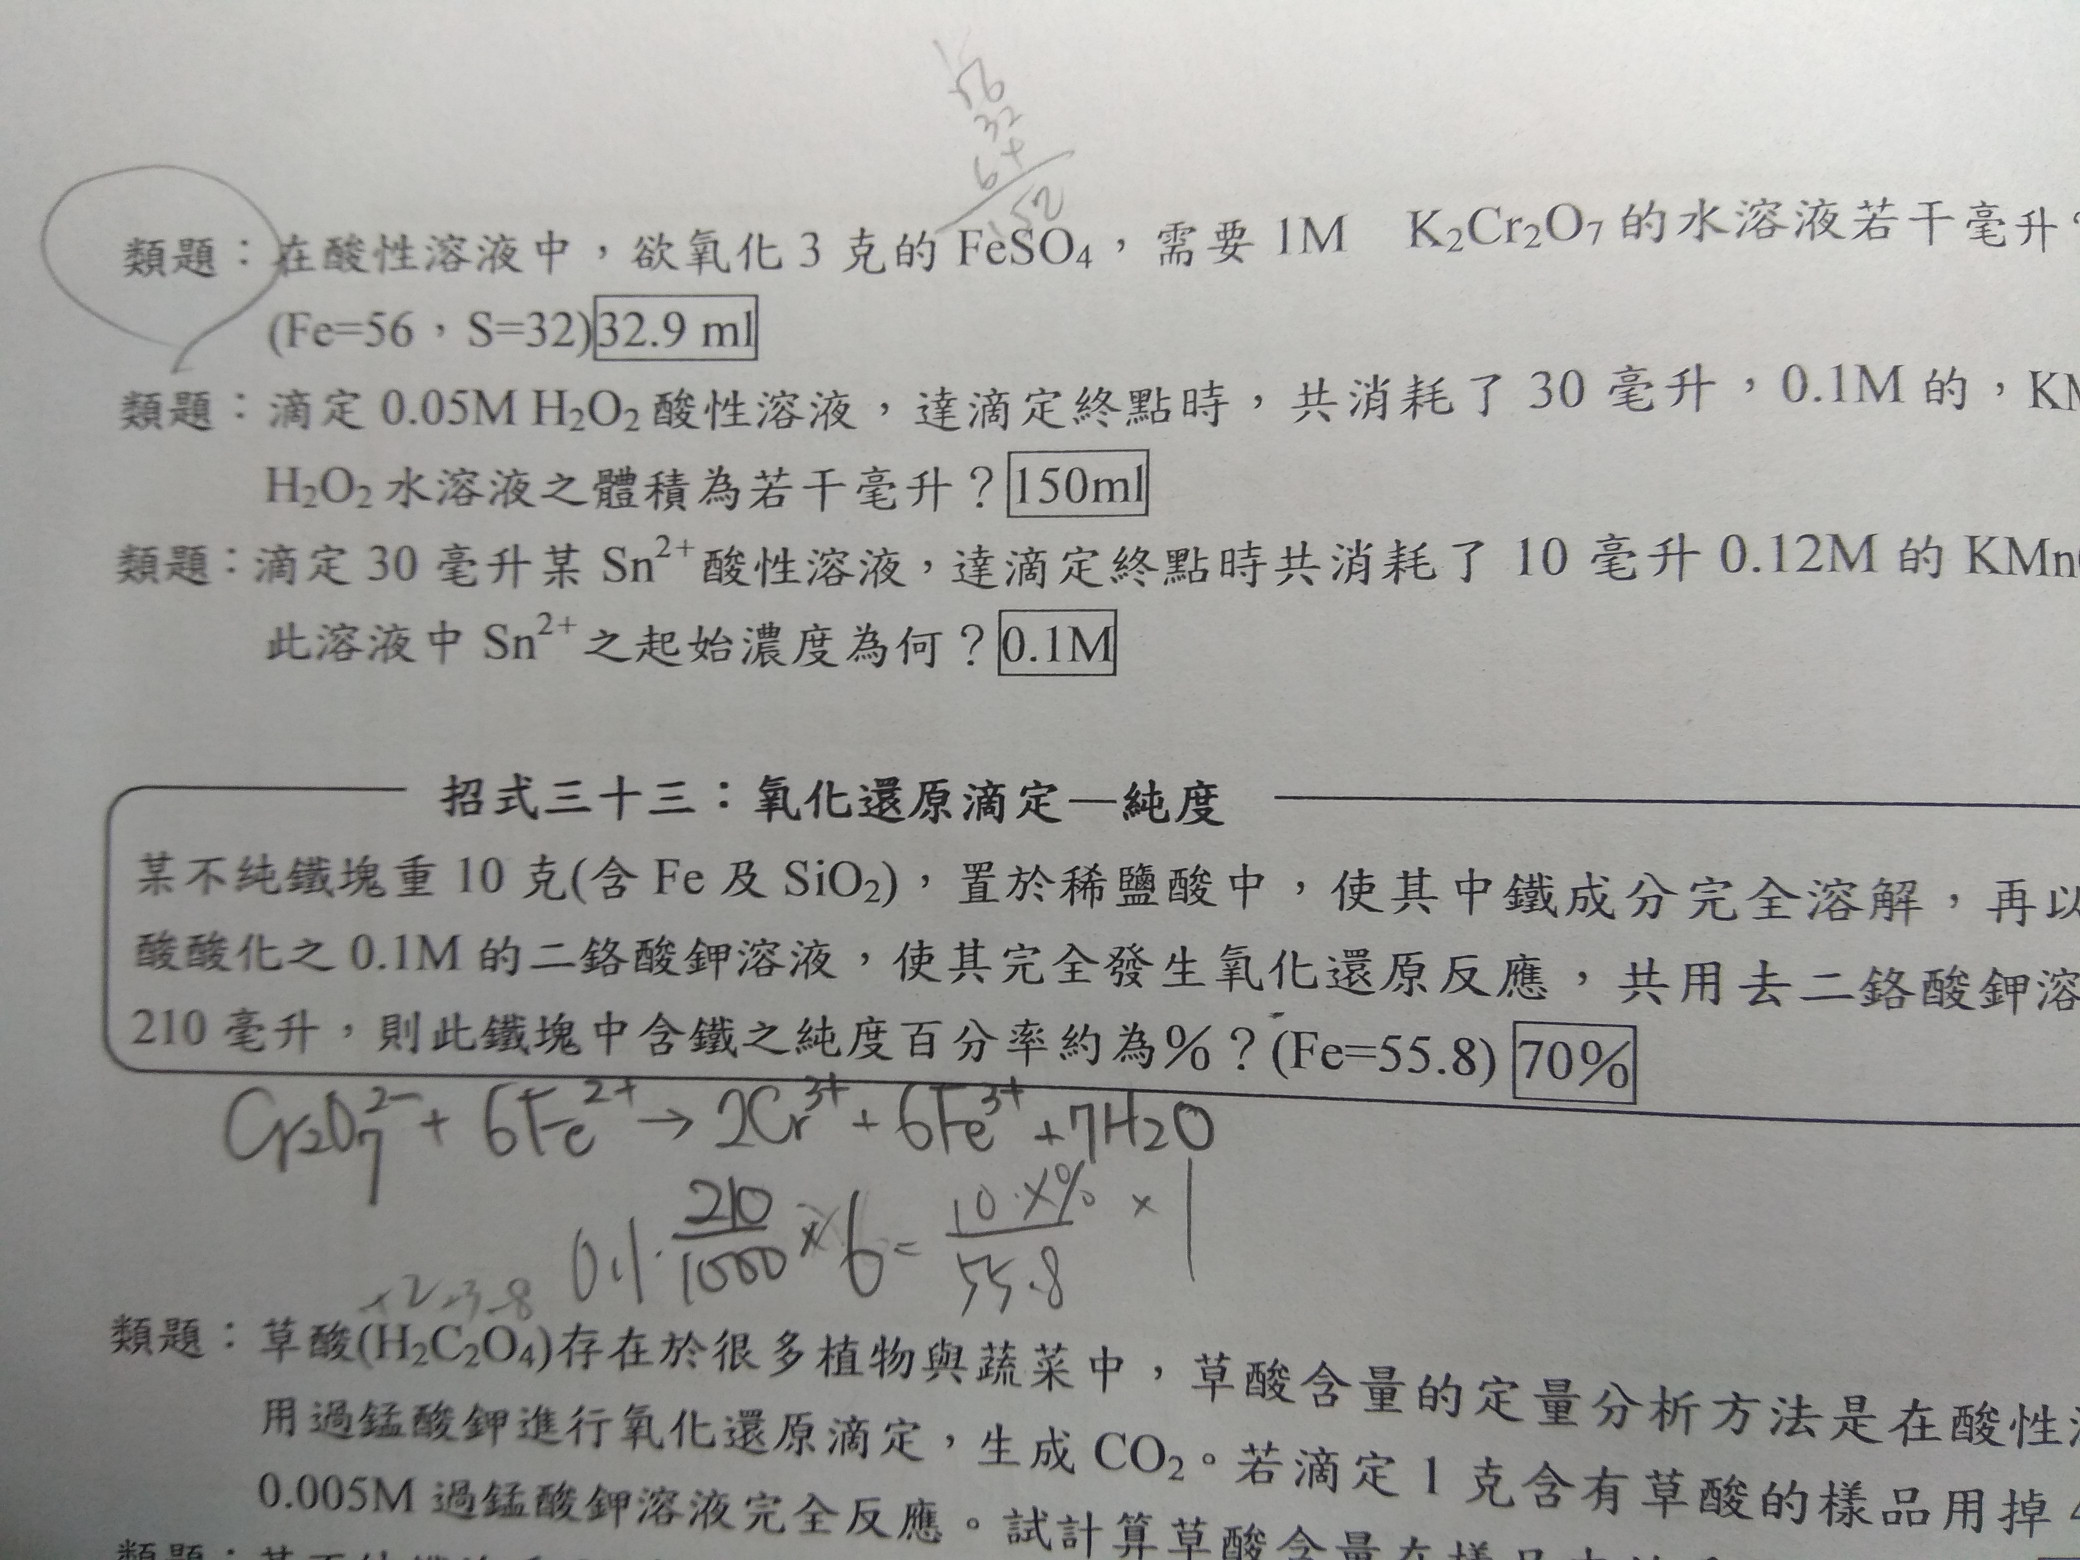 56
32
64
152
類題：在酸性溶液中，欲氧化 3 克的 FeSO₄，需要 1M K₂Cr₂O₇ 的水溶液若干毫升
(Fe=56，S=32) 32.9 ml
類題：滴定 0.05M H₂O₂ 酸性溶液，達滴定終點時，共消耗了 30 毫升，0.1M 的，KM
H₂O₂ 水溶液之體積為若干毫升？ 150ml
類題：滴定 30 毫升某 Sn²⁺ 酸性溶液，達滴定終點時共消耗了 10 毫升 0.12M 的 KMn
此溶液中 Sn²⁺ 之起始濃度為何？ 0.1M
招式三十三：氧化還原滴定—純度
某不純鐵塊重 10 克(含 Fe 及 SiO₂)，置於稀鹽酸中，使其中鐵成分完全溶解，再以
酸酸化之 0.1M 的二鉻酸鉀溶液，使其完全發生氧化還原反應，共用去二鉻酸鉀溶
210 毫升，則此鐵塊中含鐵之純度百分率約為%？(Fe=55.8) 70%
Cr₂O₇²⁻ + 6Fe²⁺ → 2Cr³⁺ + 6Fe³⁺ + 7H₂O
0.1 · 210/1000 × 6 = 10·X%/55.8 × 1
類題：草酸(H₂C₂O₄)存在於很多植物與蔬菜中，草酸含量的定量分析方法是在酸性
用過錳酸鉀進行氧化還原滴定，生成 CO₂。若滴定 1 克含有草酸的樣品用掉
0.005M 過錳酸鉀溶液完全反應。試計算草酸含量在樣品
類題：